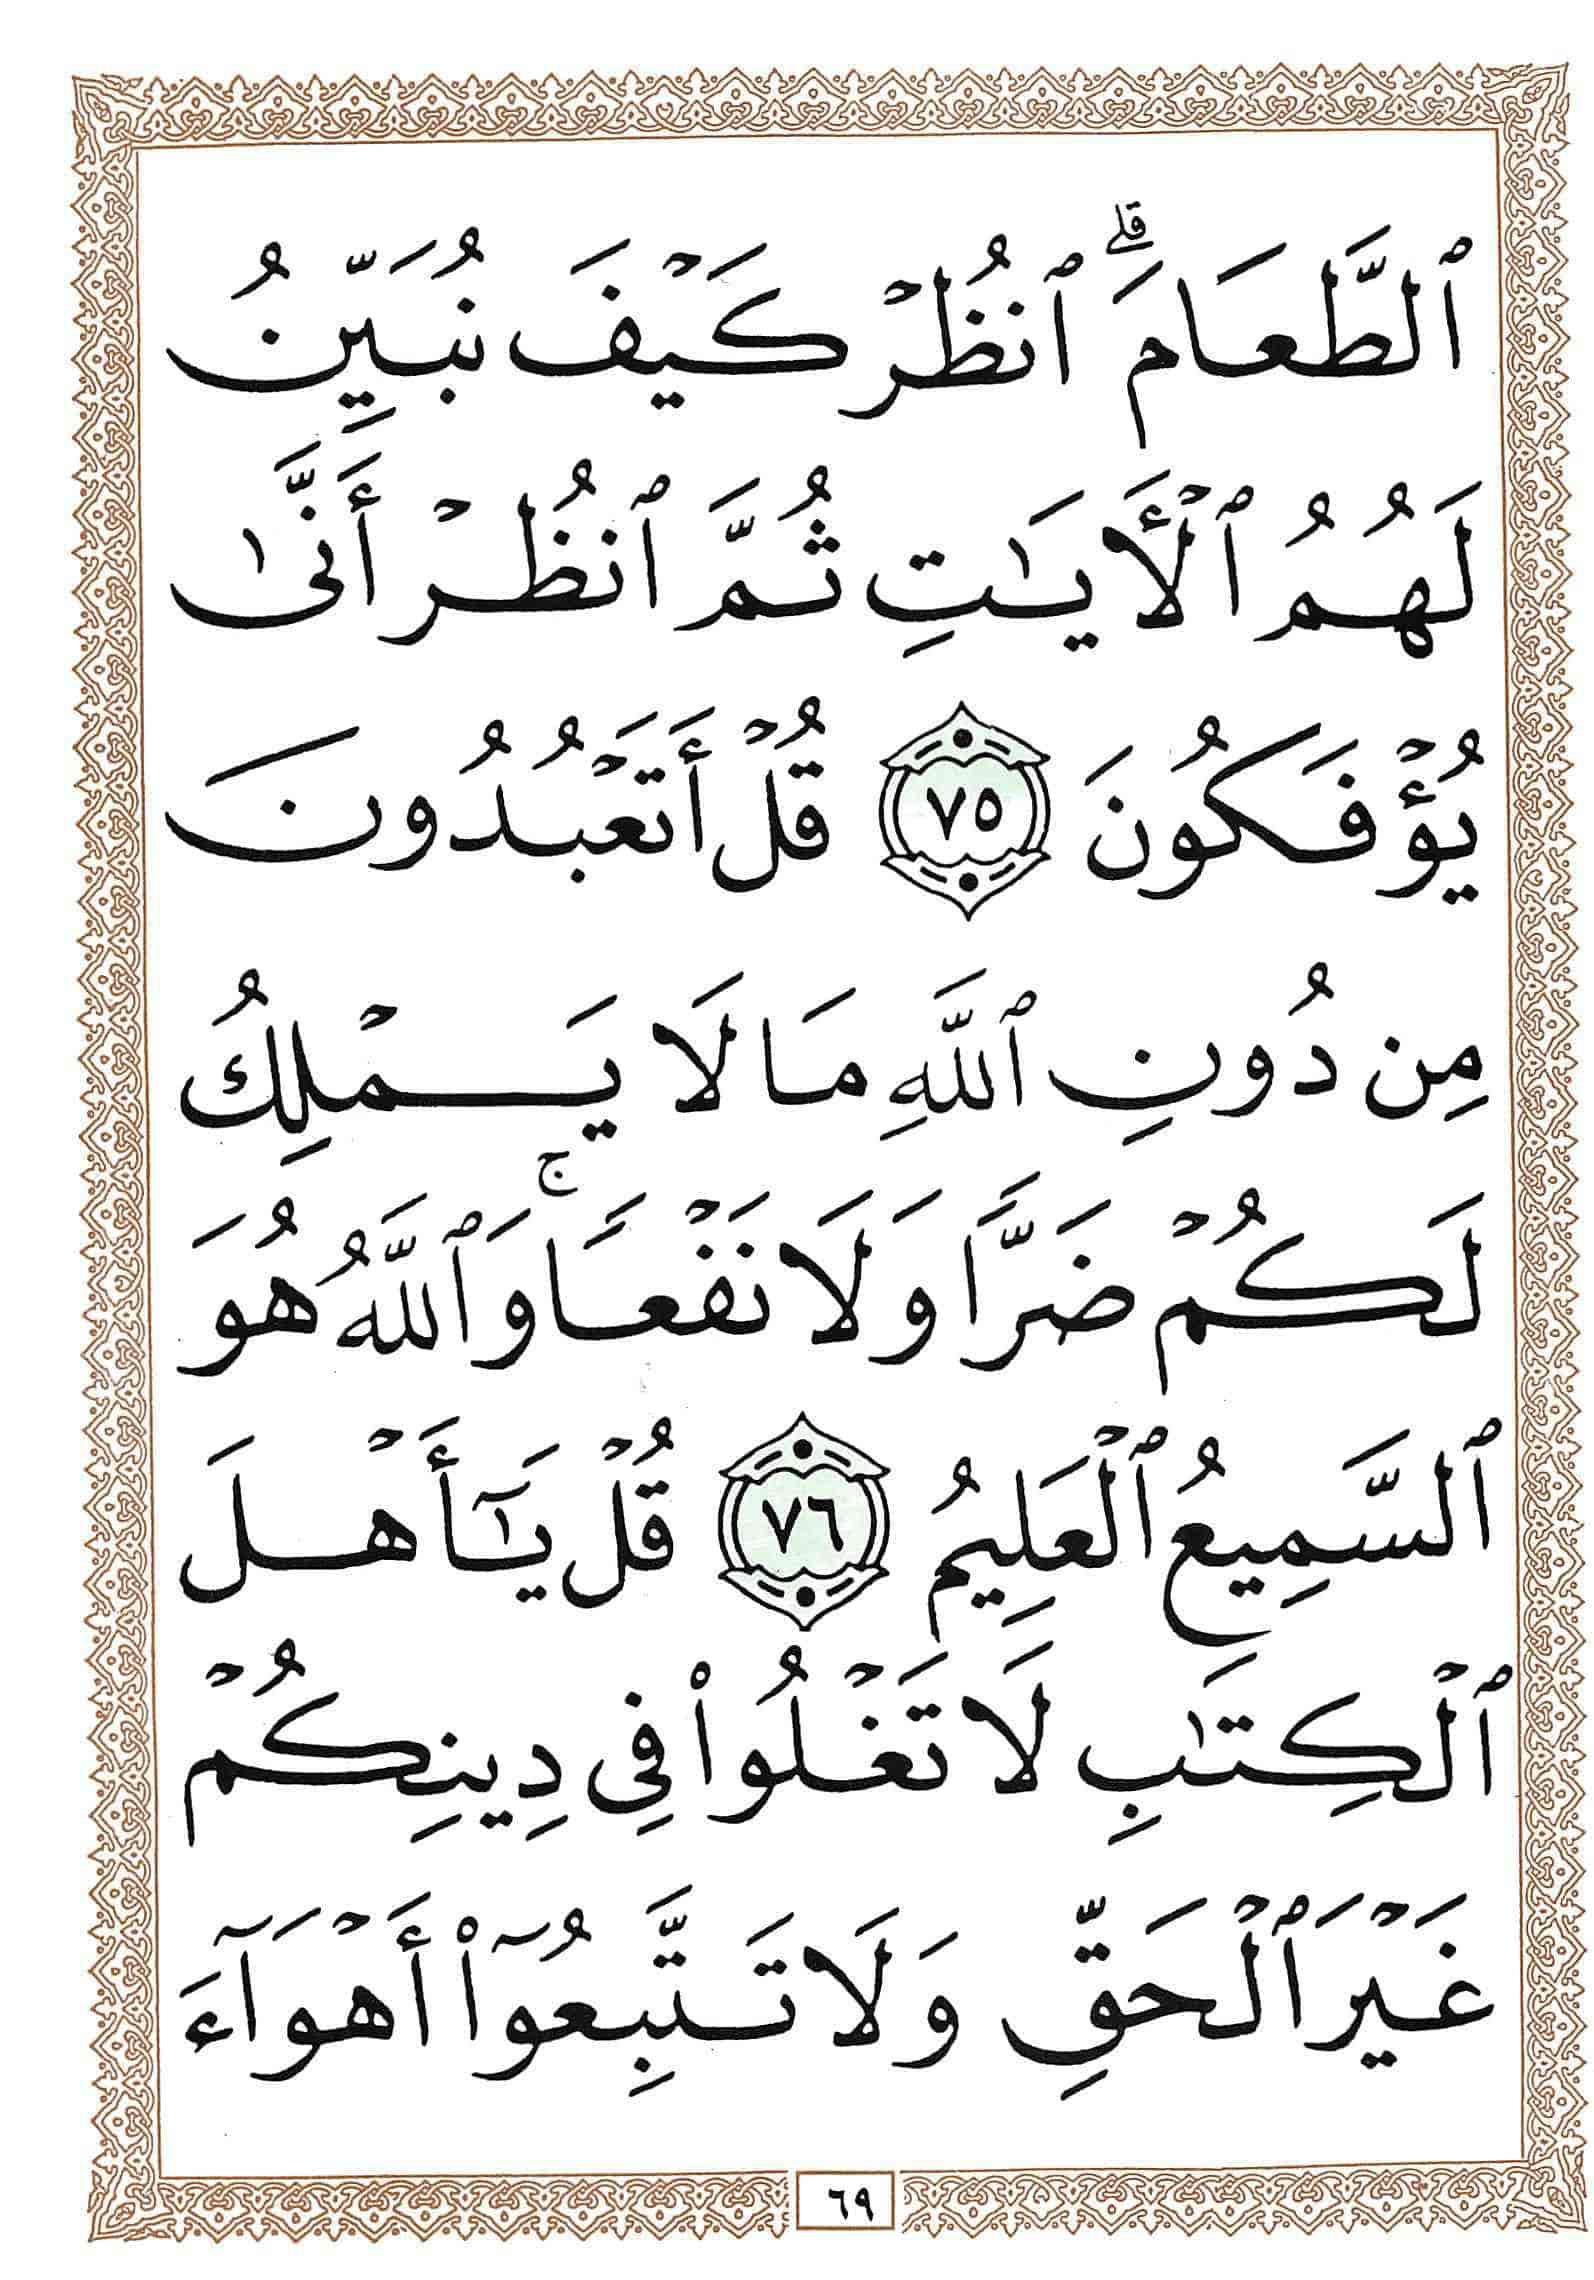 ٱلطَّعَامَۗ ٱنظُرۡ كَيۡفَ نُبَيِّنُ
لَهُمُ ٱلۡأَيَٰتِ ثُمَّ ٱنظُرۡ أَنَّىٰ
يُؤۡفَكُونَ ٧٥ قُلۡ أَتَعۡبُدُونَ
مِن دُونِ ٱللَّهِ مَا لَا يَمۡلِكُ
لَكُمۡ ضَرًّا وَلَا نَفۡعًاۚ وَٱللَّهُ هُوَ
ٱلسَّمِيعُ ٱلۡعَلِيمُ ٧٦ قُلۡ يَٰٓأَهۡلَ
ٱلۡكِتَٰبِ لَا تَغۡلُوا۟ فِى دِينِكُمۡ
غَيۡرَ ٱلۡحَقِّ وَلَا تَتَّبِعُوٓا۟ أَهۡوَآءَ
٦٩